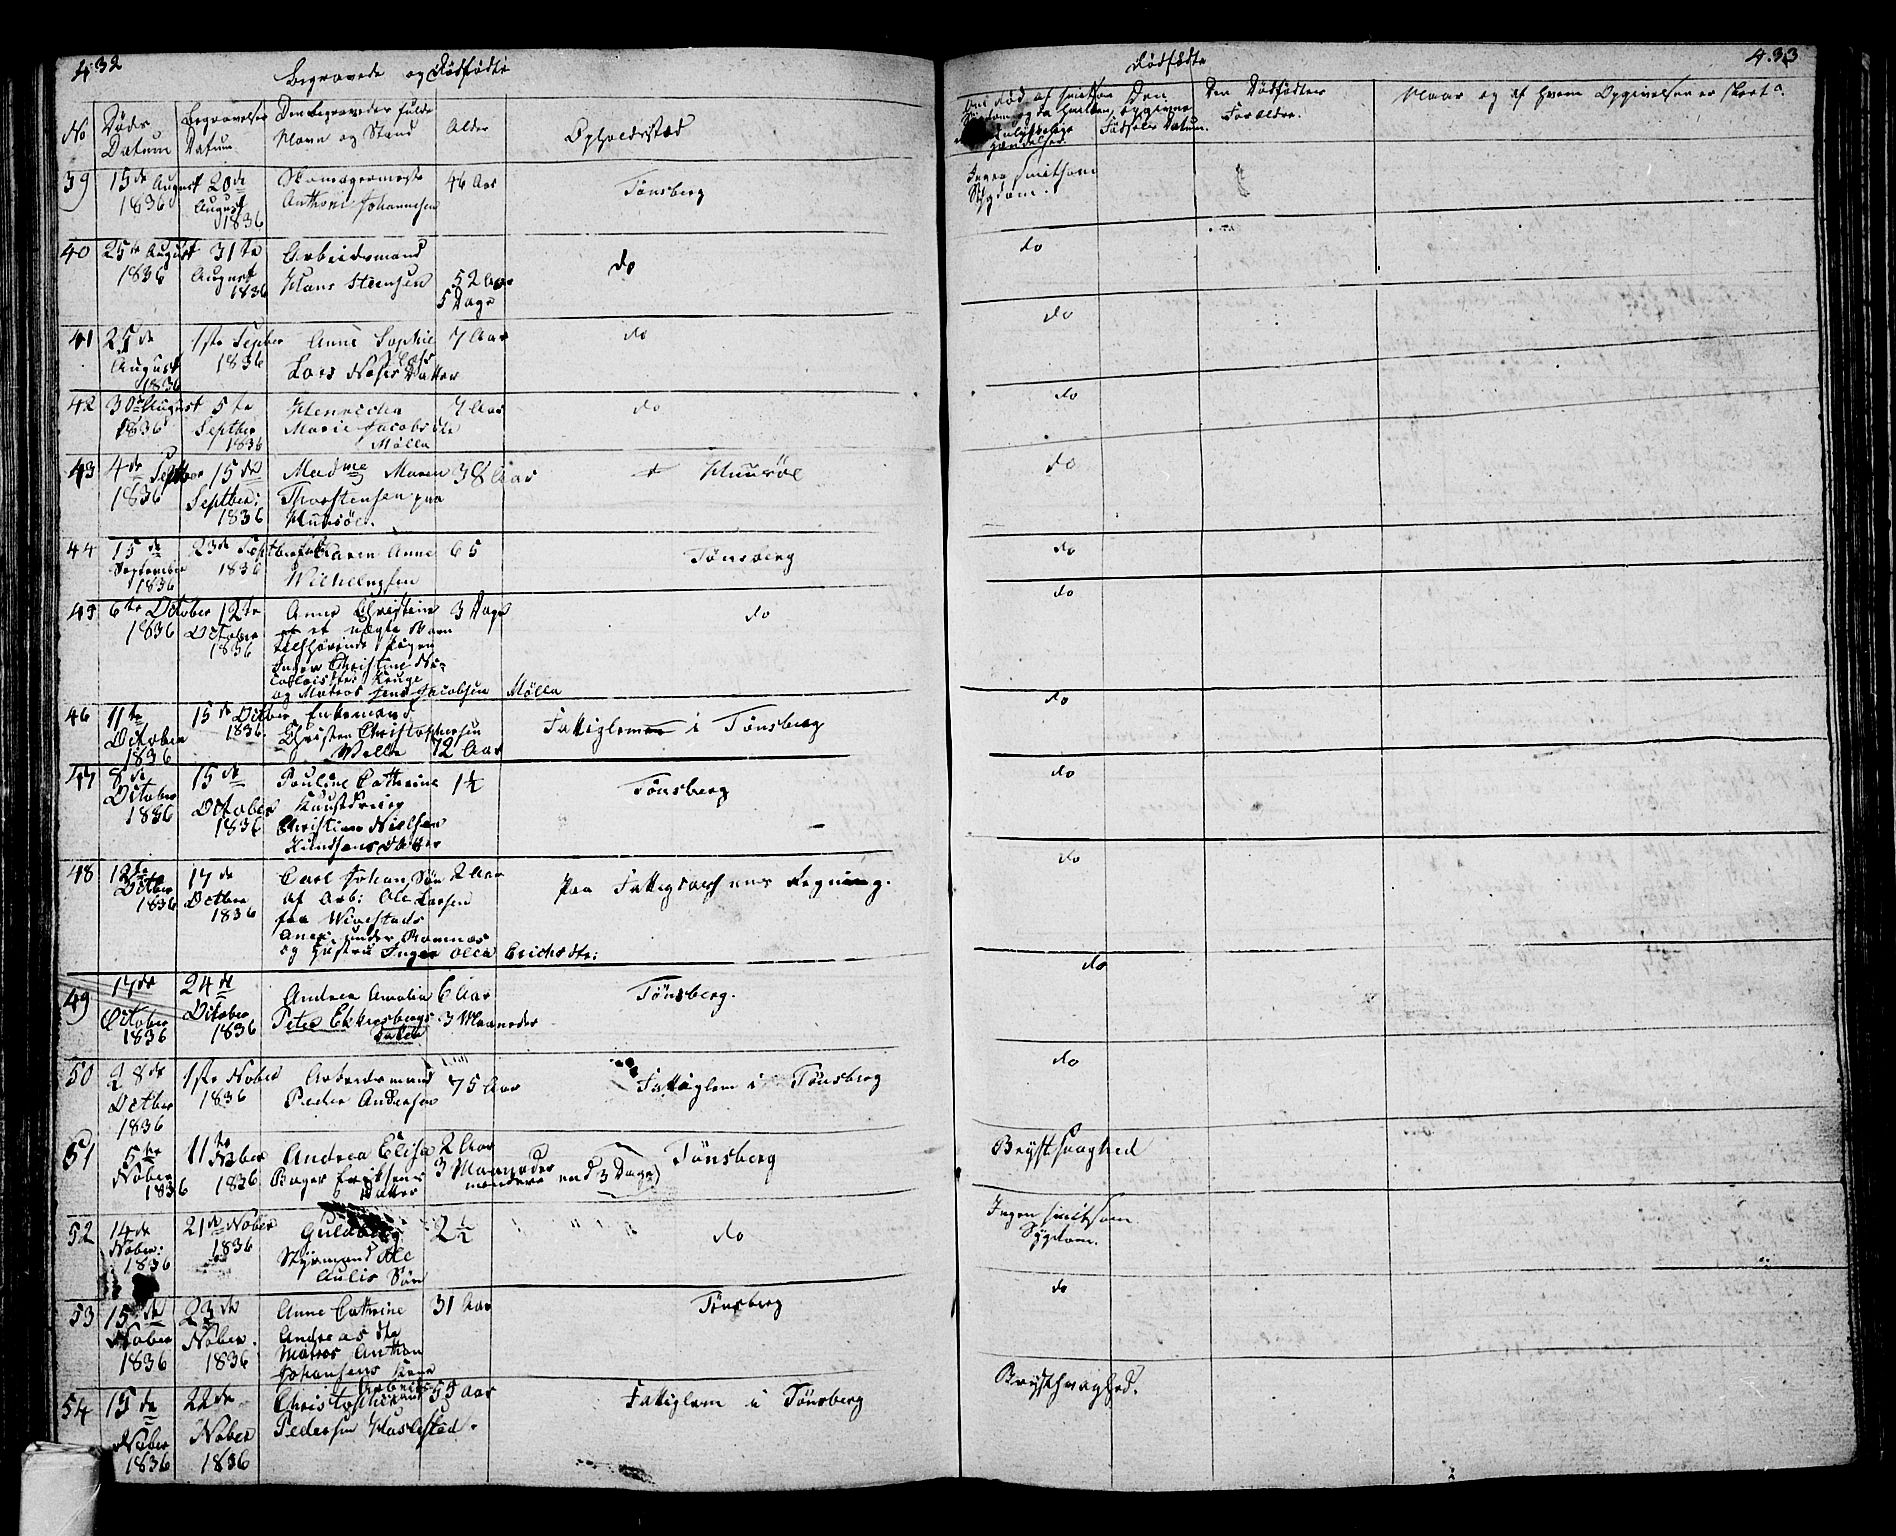 432
Begravede og Dødfødte
No
Døds Datum
Begravelses Datum
Den Begravedes fulde Navn og Stand
Alder
Opholdssted
39 15de August 1836 20de August 1836 Skomagermester Anthoni Johannesen 46 Aar Tønsberg
40 25de August 1836 31te August 1836 Arbeidsmand Hans Steensen 52 Aar 5 Dage do
41 25de August 1836 1ste Septber 1836 Anne Sophie Lars Datter 7 Aar do
42 30te August 1836 5te Septber 1836 Henrikka Marie Jacobsdtr Mølla 7 Aar do
43 4de Septbr 1836 15de Septber: 1836 Madme Maren Thorstensen paa Huusøe. 38 Aar Huusøe
44 15de September 1836 23de Septbr 1836 Karen Anne Wilhelmsen 65 Tønsberg
45 6te October 1836 12te October 1836 Anne Christine et uægte Barn tilhørende Pigen Inger Christine og Matros Jens Jacobsen Mølla 3 Dage do
46 11te October 1836 15de Octber 1836. Enkemand Christen Christophersen Welle 72 Aar Fattiglem i Tønsberg
47 8de October 1836 15de October 1836 Pauline Cathrine Christian Nielsen Knudsens Datter 1½ Tønsberg
48 12te Octber 1836 17de Octber 1836 Carl Johan, Søn af Arb: Ole Larsen fra Wivestads Anex under Ramnæs og Hustru Inger Olea Erichsdtr: 2 Aar Paa Fattigvæsenets Regning.
49 17de October 1836 24de October 1836 Andrea Amalia Peter Ekkersbergs Datter 6 Aar 3 Maaneder Tønsberg.
50 28de Octber 1836 1ste Nober 1836 Arbeidsmand Peder Andersen 75 Aar Fattiglem i Tønsberg
51 5te Nober 1836 11te Nober 1836 Andrea Elise Bager Eriksens Datter 2 Aar 3 Maaneder mindre end 3 Dage) Tønsberg
52 14de Nober: 1836 21de Nober 1836 Styrmand Ole Aulis Søn 2½ do
53 15de Nober 1836 23de Nober. 1836 Anne Cathrine Andreas dtr Matros Anthon Johansens Kone 31 Aar Tønsberg
54 15de Nober 1836 22de Nober 1836 Arbeids Christopher Pedersen Haslestad. 55 Aar Fattiglem i Tønsberg
433
Dødfødte
Om Død af smitsom Sygdom og da hvilken, eller ulykkelige Hændelser.
Den opgivne Fødsels Datum.
Den Dødfødtes Forældre.
Naar og af hvem Opgivelsen er skeet.
Ingen smitsom Sygdom.
do
do
do
do
do
do
do
do
do
do
do
Brystsvaghed
Ingen smitsom Sygdom.
do
Brystsvaghed.